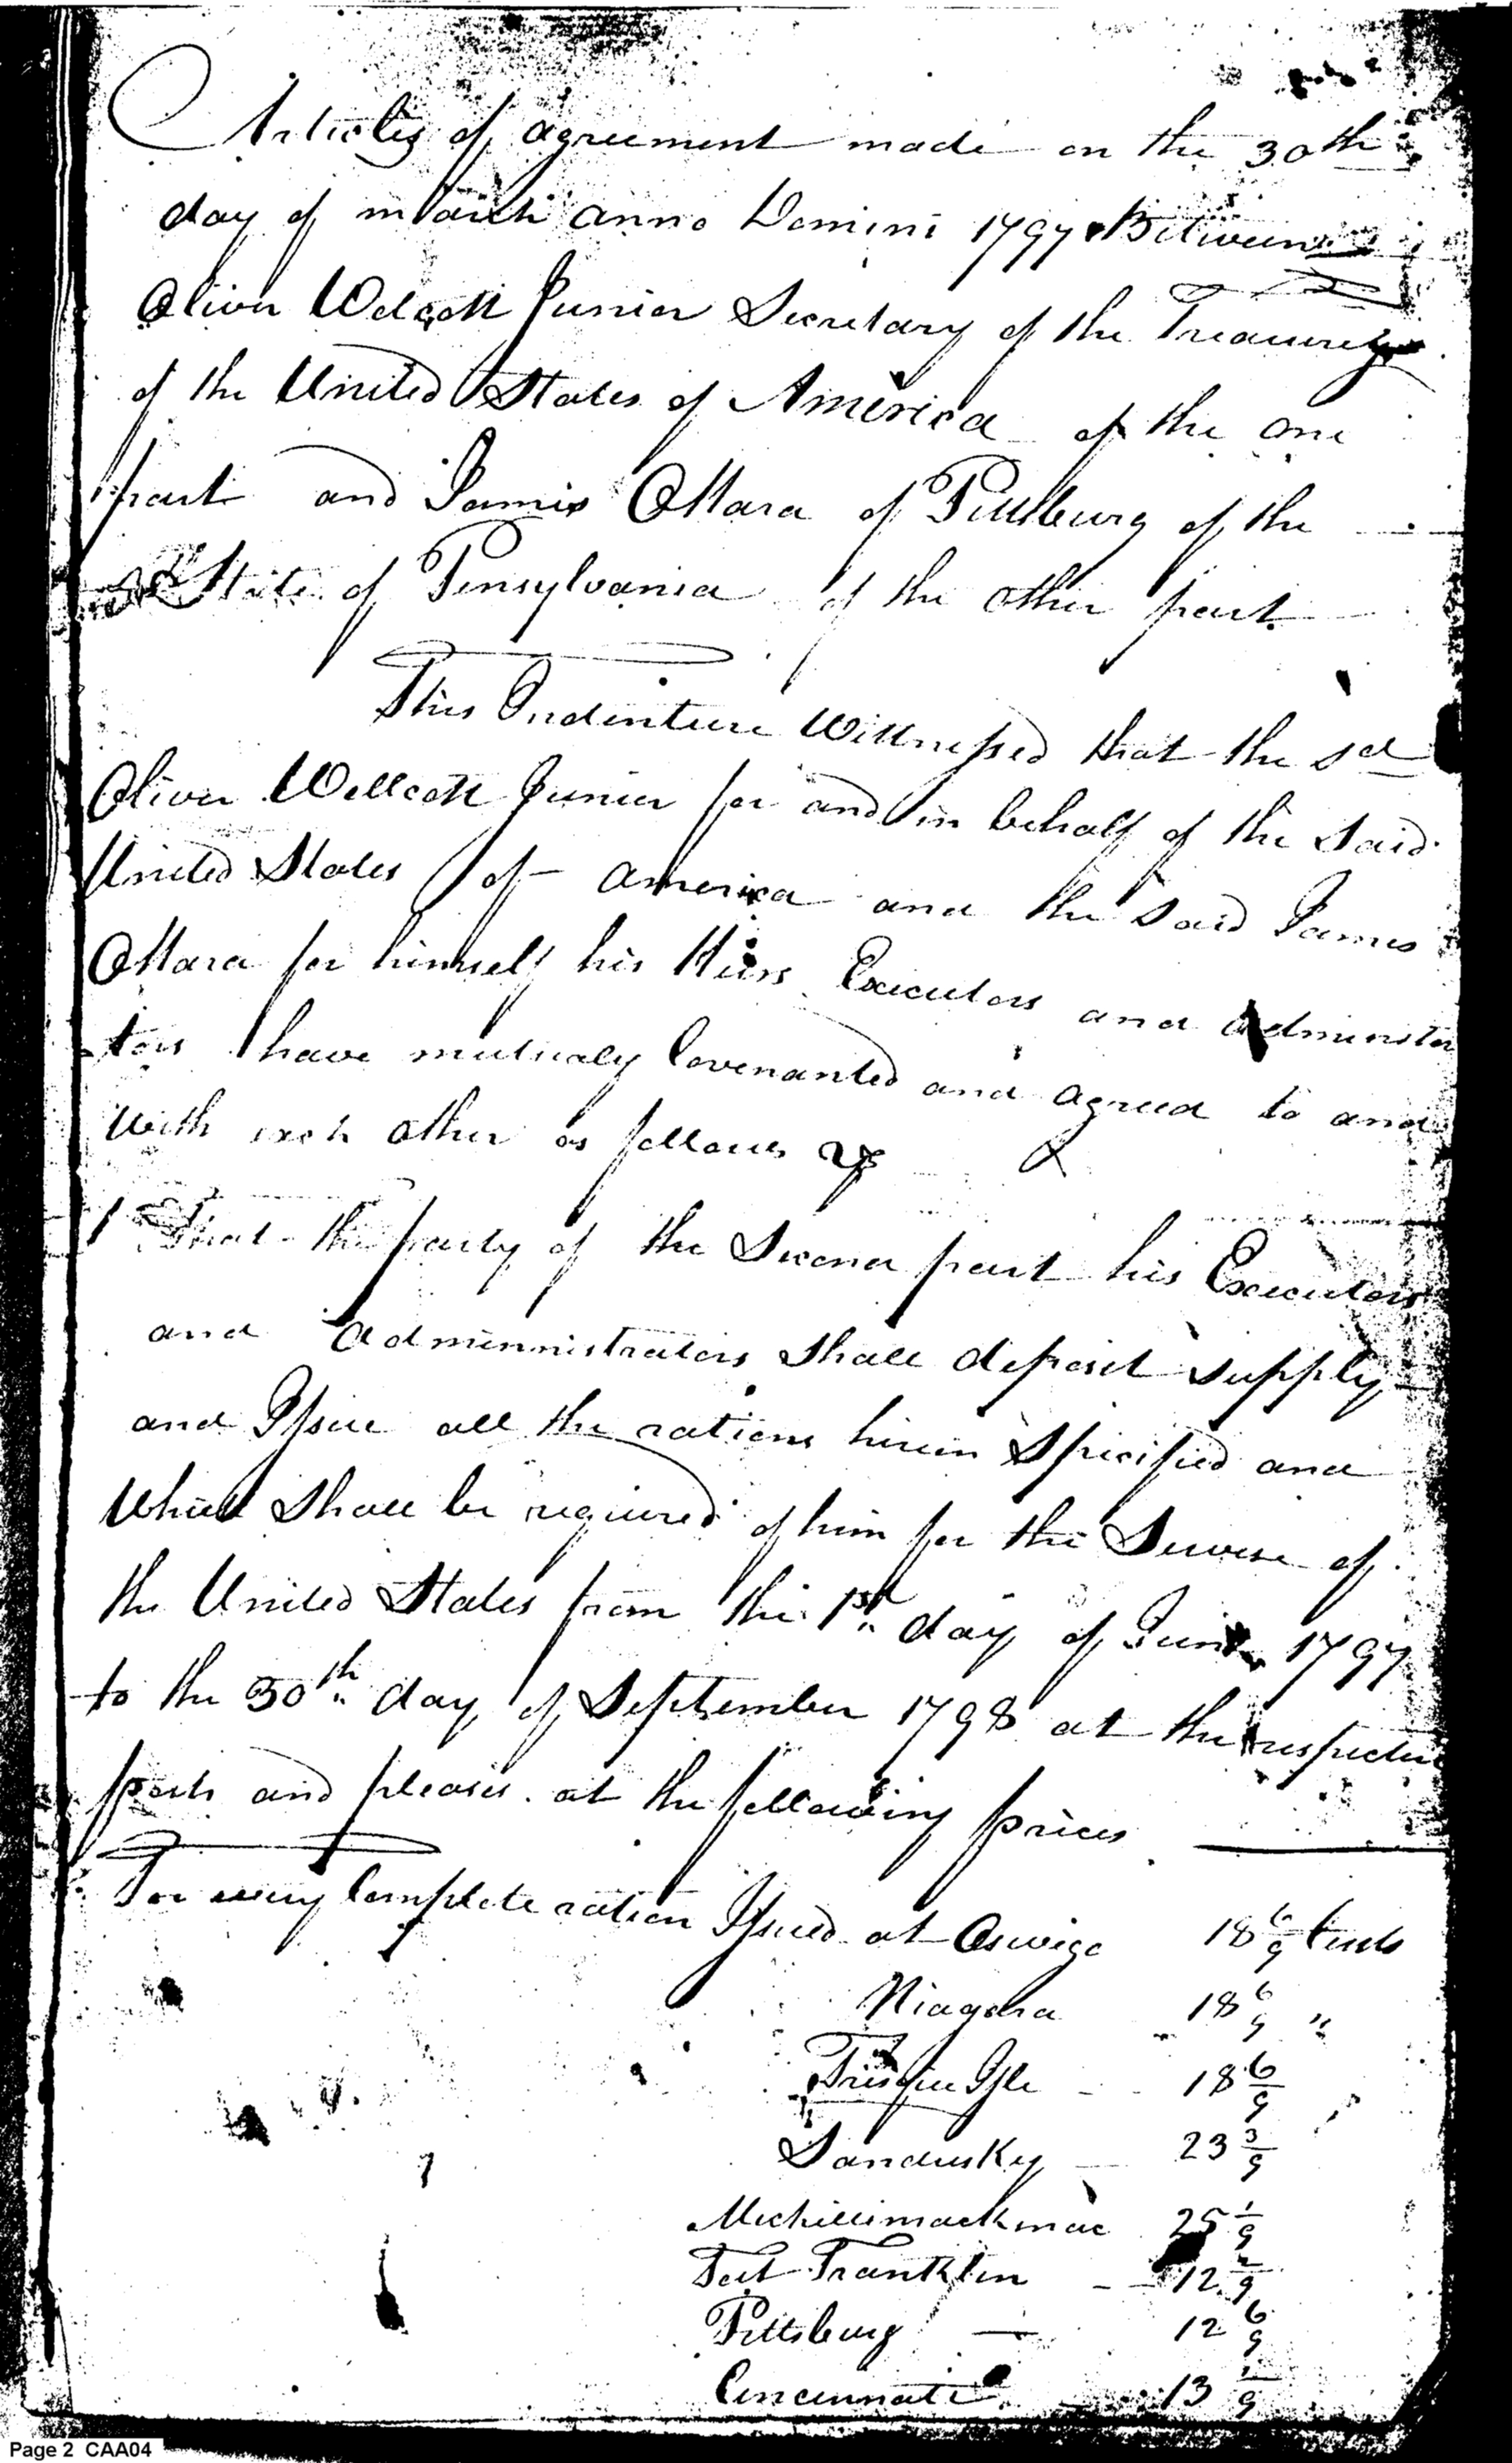 Articles of agreement made on the 30th
day of march anno Domini 1797 Between
Oliver Wolcott Junior Secretary of the Treasurey
of the United States of America of the one
part and James OHara of Pittsburg of the
State of Pensylvania of the other part
This Indenture Wittnessed that the sd
Oliver Wollcott Junior for and in behalf of the Said
United States of America and the Said James
OHara for himself his Heirs Executors and Adminstra
tors have mutualy Covenanted and agreed to and
with each other as follows
1 That the party of the Second part his Executors
and Adminnistrators Shall deposit supply
and Issue all the rations herein Specified and
Which Shall be required of him for the Servise of
the United States from the 1st day of June 1797
to the 30th day of September 1798 at the respective
posts and pleases at the following prices
For every Complete ration Issued at Oswigo 18 6/9 Cents
Niagara 18 6/9 "
Presque Isle 18 6/9
Sandusky 23 3/9
Michillimackinac 25 1/9
Fort Franklin 12 /9
Pittsburg 12 6/9
Cincinnati 13 1/9
Page 2 CAA04